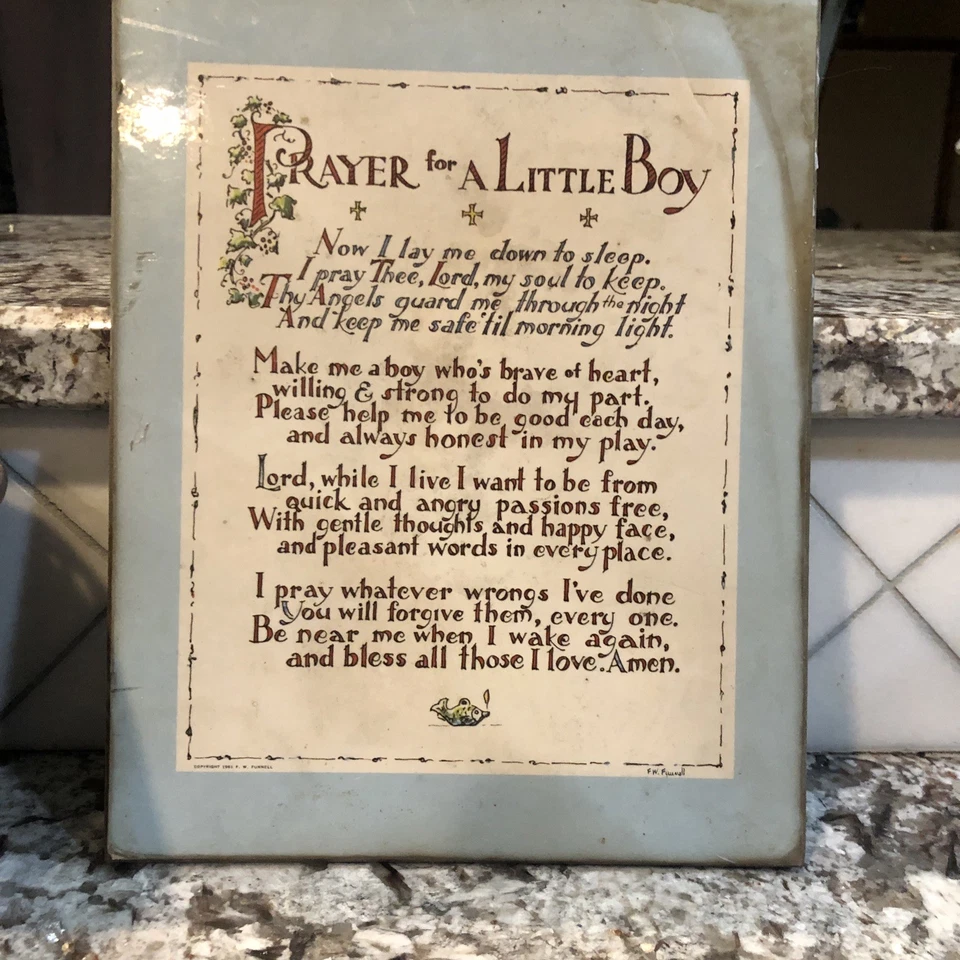 PRAYER for A LITTLE BOY
Now I lay me down to sleep.
I pray Thee, Lord, my soul to keep.
Thy Angels guard me through the night
And keep me safe 'til morning light.
Make me a boy who's brave of heart,
willing & strong to do my part.
Please help me to be good each day,
and always honest in my play.
Lord, while I live I want to be from
quick and angry passions free,
With gentle thoughts and happy face,
and pleasant words in every place.
I pray whatever wrongs I've done
You will forgive them, every one.
Be near me when I wake again,
and bless all those I love. Amen.
COPYRIGHT F. W. FUNNELL
F.W. Funnell